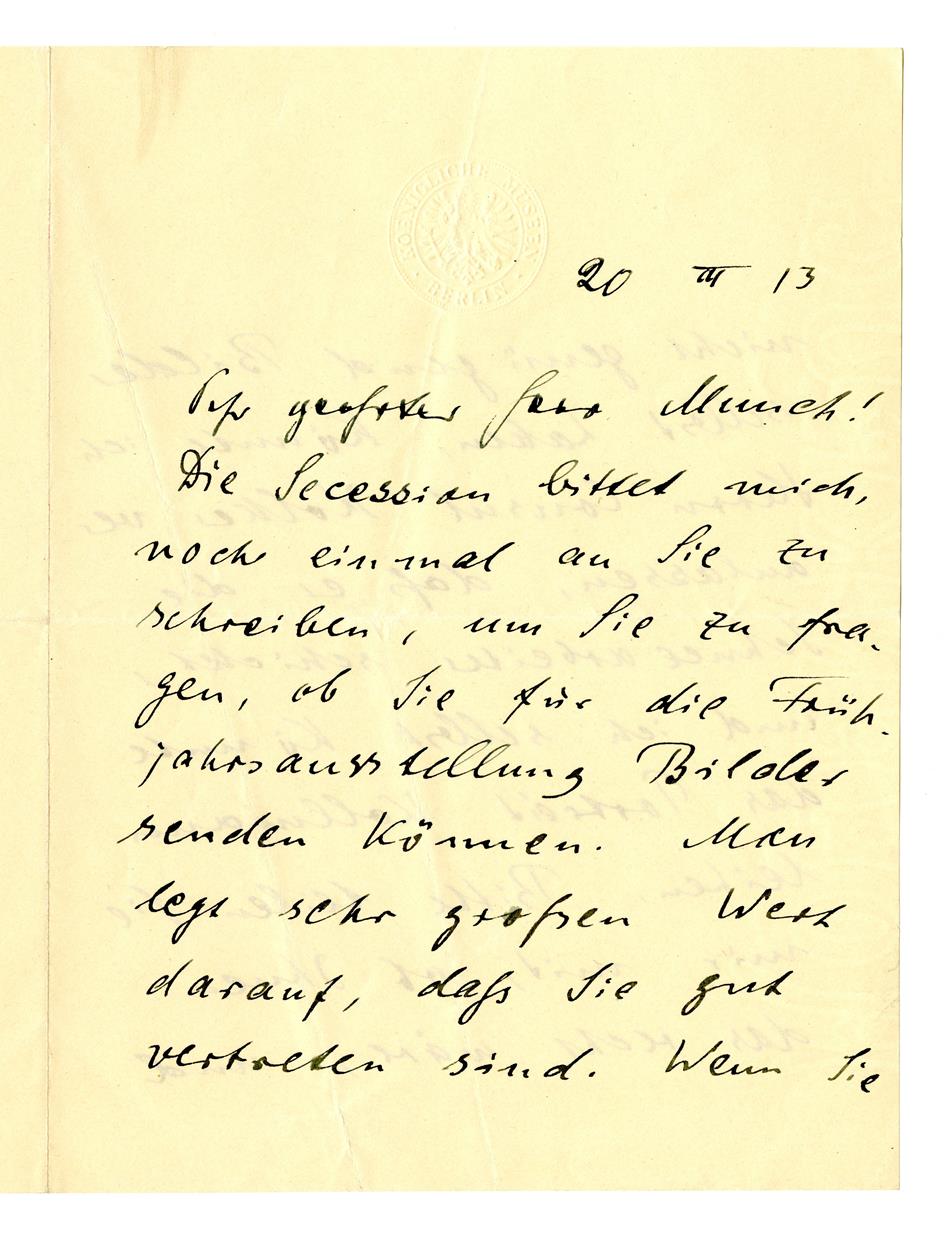 KOENIGLICHE MUSEEN
BERLIN
20 III 13
Sehr geehrter Herr Munch!
Die Secession bittet mich,
noch einmal an Sie zu
schreiben, um Sie zu fra-
gen, ob Sie für die Früh-
jahrsausstellung Bilder
senden können. Man
legt sehr großen Wert
darauf, daß Sie gut
vertreten sind. Wenn Sie